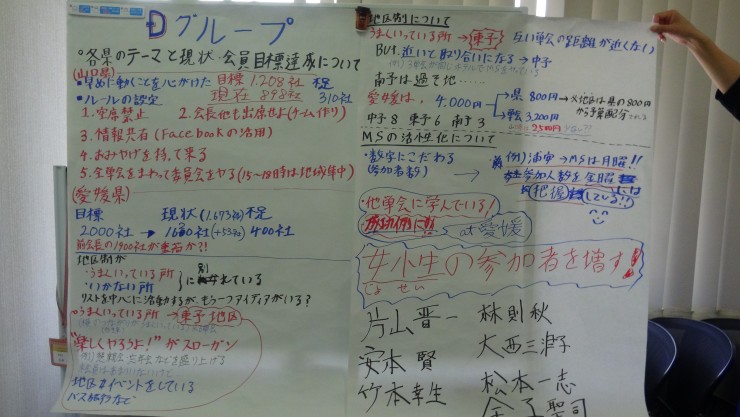 Dグループ
・各県のテーマと現状・会員目標達成について
(山口県)
・早めに動くことを心がけた 目標 1,208社 不足
現在 898社 310社
・ルールの設定
1.空席禁止 2.会長他も出席せよ(チーム作り)
3.情報共有(Facebookの活用)
4.おみやげを持って来る
5.全単会をまわって委員会をやる(15〜18時は地域集中)
(愛媛県)
目標 現状(1,673社)不足
2000社 → 1600社(+53社) 400社
前会長の1900社が重石か?!
地区割が
・うまくいっている所
・いかない所
に別れている
リストを中心に活動するが、もう一つアイディアがいる?
→うまくいっている所→東予地区
"楽しくやろうよ!"がスローガン
地区でイベントをしている
バス旅行など
地区割について
うまくいっている所→東予 互い単会の距離が近くない
BUT.近いと取り合いになる→中予
南予は過そ地……
愛媛は、4,000円→県 800円→×地区は県の800円
から予算配分される
→単 3,200円
2,500円
中予8 東予6 南予3
MSの活性化について
・数字にこだわる
(参加者数)
→例)浦宗→MSは月曜!!
参加人数を金曜
には
把握している!!
・他単会に学んでいる!
成功例に!! at愛媛
女小生の参加者を増す!
じょ せい
片山晋一 林則秋
安本賢 大西三潤子
竹本幸生 松本一志
金子聖司